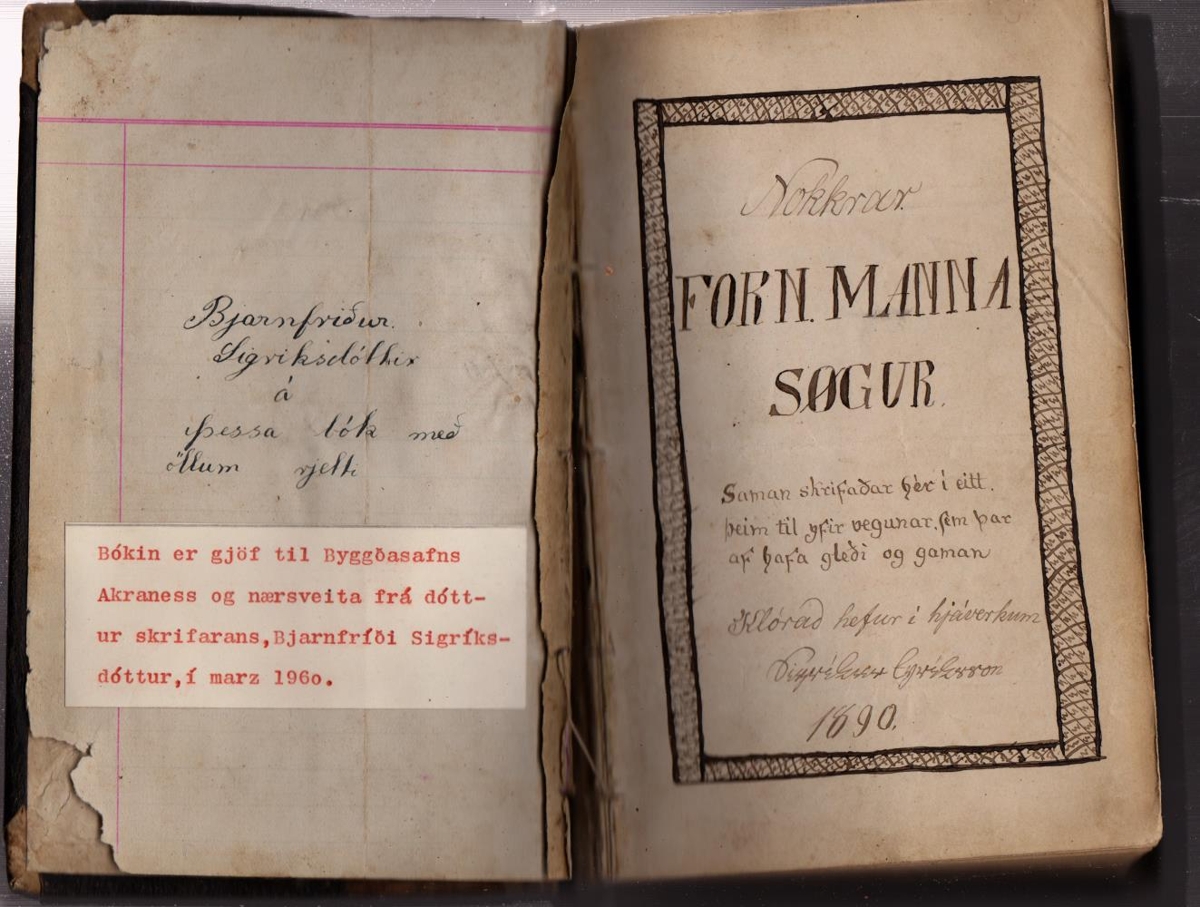 Bjarnfriður.
Sigriksdóttir
á
þessa bók með
öllum rjetti
Bókin er gjöf til Byggðasafns
Akraness og nærsveita frá dótt-
ur skrifarans,Bjarnfríði Sigríks-
dóttur,í marz 196o.
Nokkrar
FORN. MANNA
SØGUR.
Saman skrifaðar hér í eitt.
þeim til yfir vegunar, sem þar
af hafa gleði og gaman
Klórað hefur í hjáverkum
Sigríkur Eyríksson
1890.